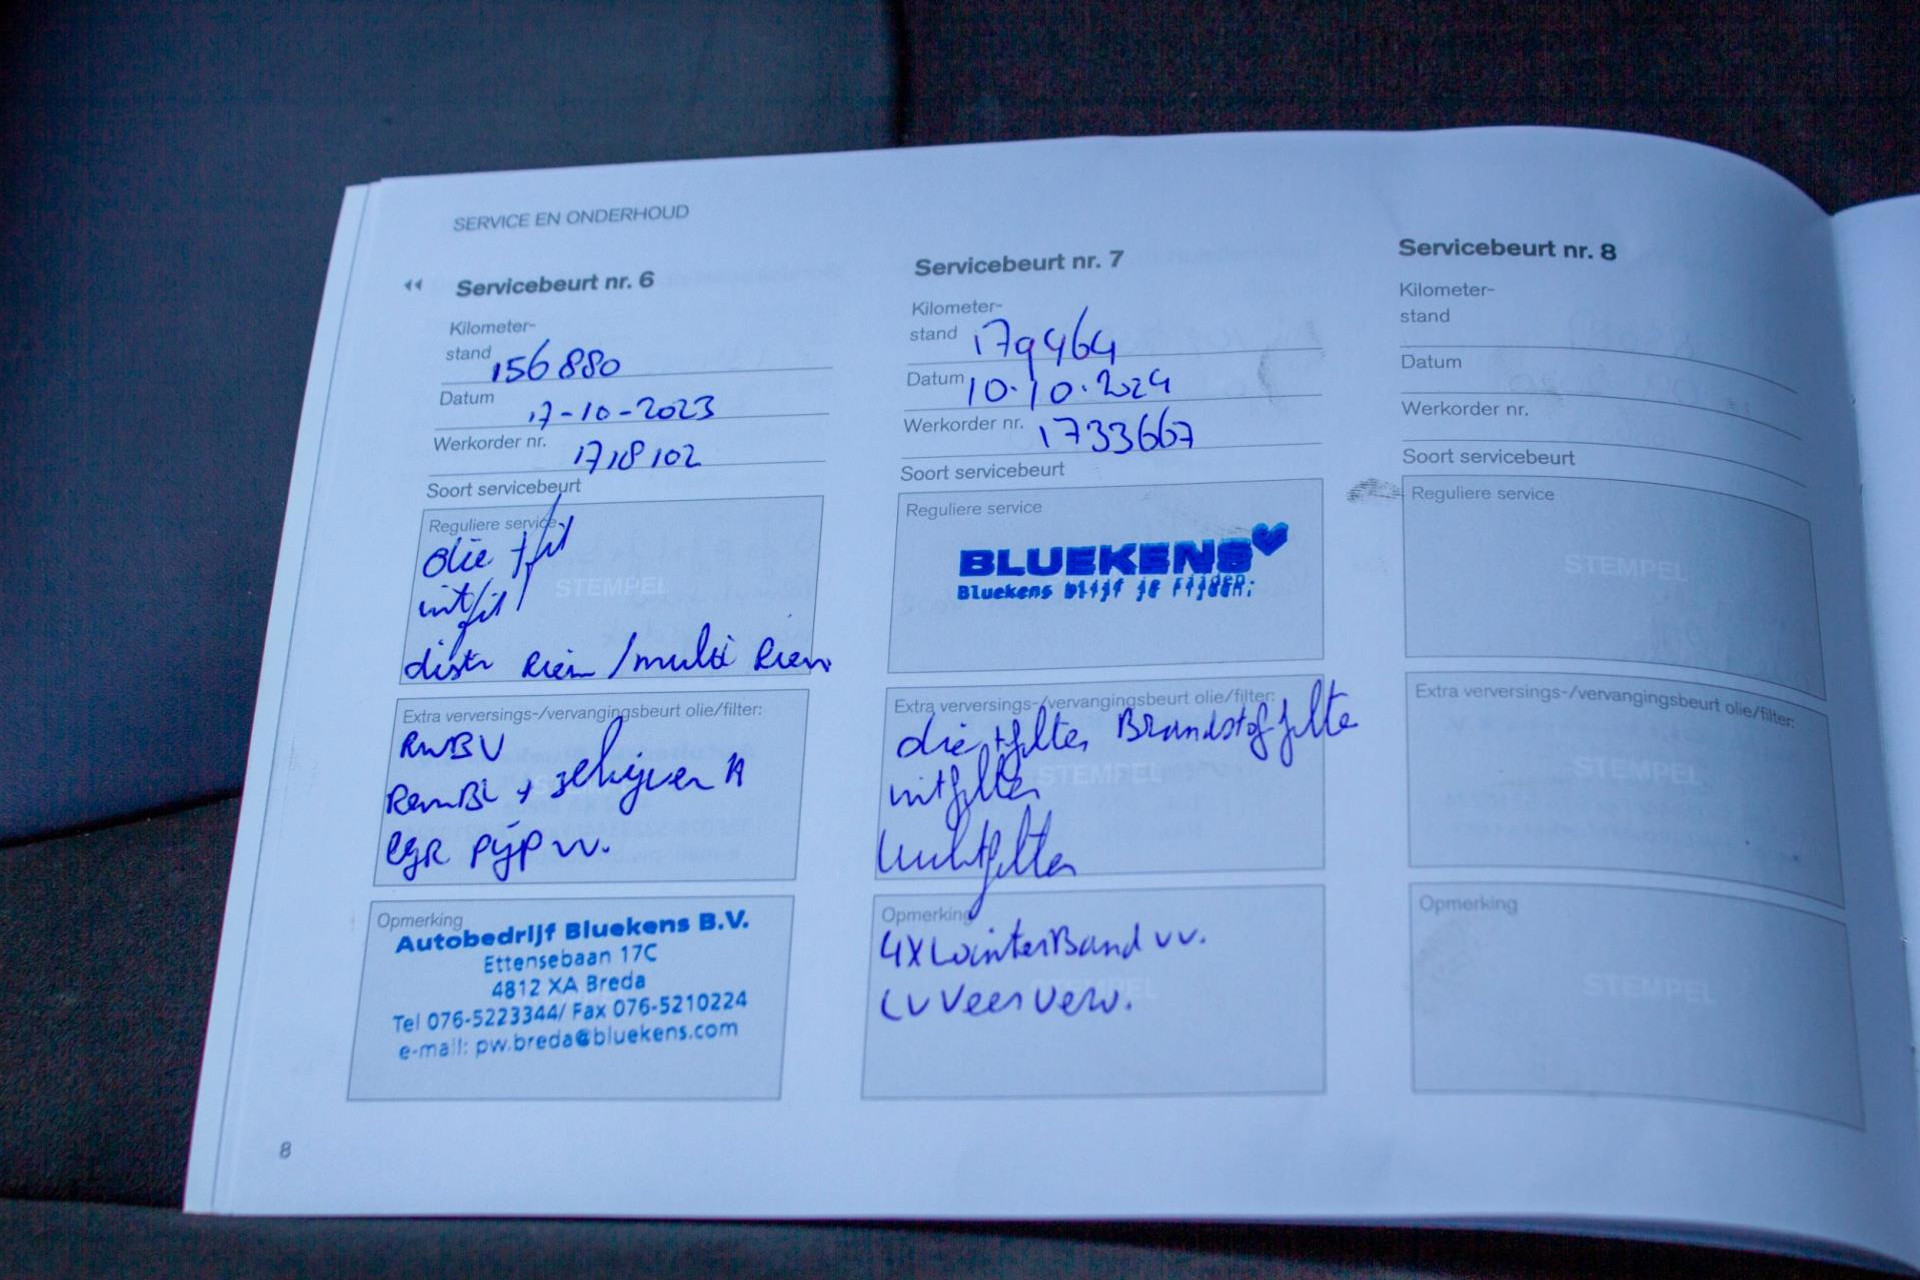 SERVICE EN ONDERHOUD
Servicebeurt nr. 6
Kilometer-
stand 156880
Datum 17-10-2023
Werkorder nr. 1718102
Soort servicebeurt
Reguliere service
olie + fil
intfil
STEMPEL
distr Riem / multi Riem
Extra verversings-/vervangingsbeurt olie/filter:
RWBV
RemBL + schijven A
EGR pijp vv.
Opmerking
Autobedrijf Bluekens B.V.
Ettensebaan 17C
4812 XA Breda
Tel 076-5223344/ Fax 076-5210224
e-mail: pw.breda@bluekens.com
8
Servicebeurt nr. 7
Kilometer-
stand 179464
Datum 10.10.2024
Werkorder nr. 1733667
Soort servicebeurt
Reguliere service
BLUEKENS
Bluekens blijf je rijden.
Extra verversings-/vervangingsbeurt olie/filter:
olie + filter Brandstoffilte
intfilter
STEMPEL
luchtfilter
Opmerking
4X WinterBand vv.
LV Veer Verv.
Servicebeurt nr. 8
Kilometer-
stand
Datum
Werkorder nr.
Soort servicebeurt
Reguliere service
STEMPEL
Extra verversings-/vervangingsbeurt olie/filter:
STEMPEL
Opmerking
STEMPEL